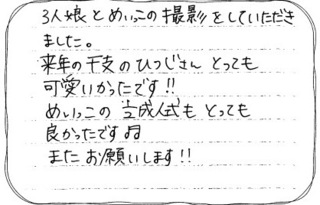 3人娘とめいっこの撮影をしていただき
ました。
来年の干支のひつじさん とっても
可愛いかったです!!
めいっこの 立成人式も とっても
良かったです♬
また お願いします!!